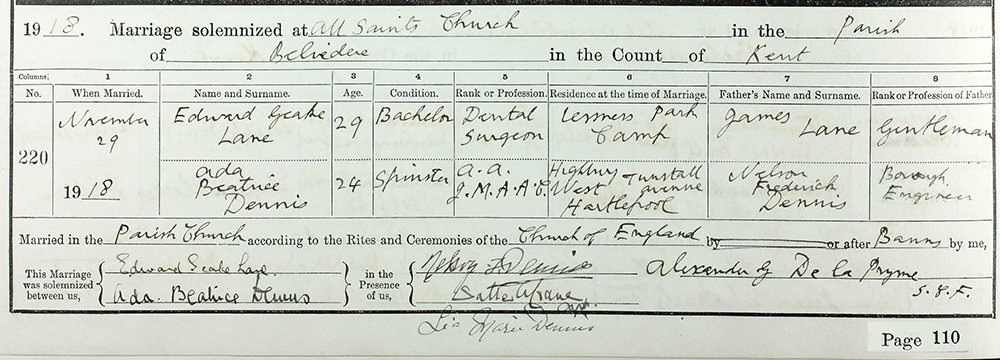 1918. Marriage solemnized at All Saints Church in the Parish
of Belvedere in the Count of Kent
Columns; 1 2 3 4 5 6 7 8
No. When Married. Name and Surname. Age. Condition. Rank or Profession. Residence at the time of Marriage. Father's Name and Surname. Rank or Profession of Father
220
November
29
1918
Edward Geake
Lane
29
Bachelor
Dental
Surgeon
Lessness Park
Camp
James Lane
Gentleman
Ada
Beatrice
Dennis
24
Spinster
Highbury Tunstall
West Avenue
Hartlepool
Nelson
Frederick
Dennis
Borough
Engineer
Married in the Parish Church according to the Rites and Ceremonies of the Church of England by or after Banns by me,
This Marriage
was solemnized
between us,
Edward Geake Lane
Ada. Beatrice Dennis
in the
Presence
of us,
Nelson F Dennis
Marie Dennis
Alexander G De la Pryme
Page 110